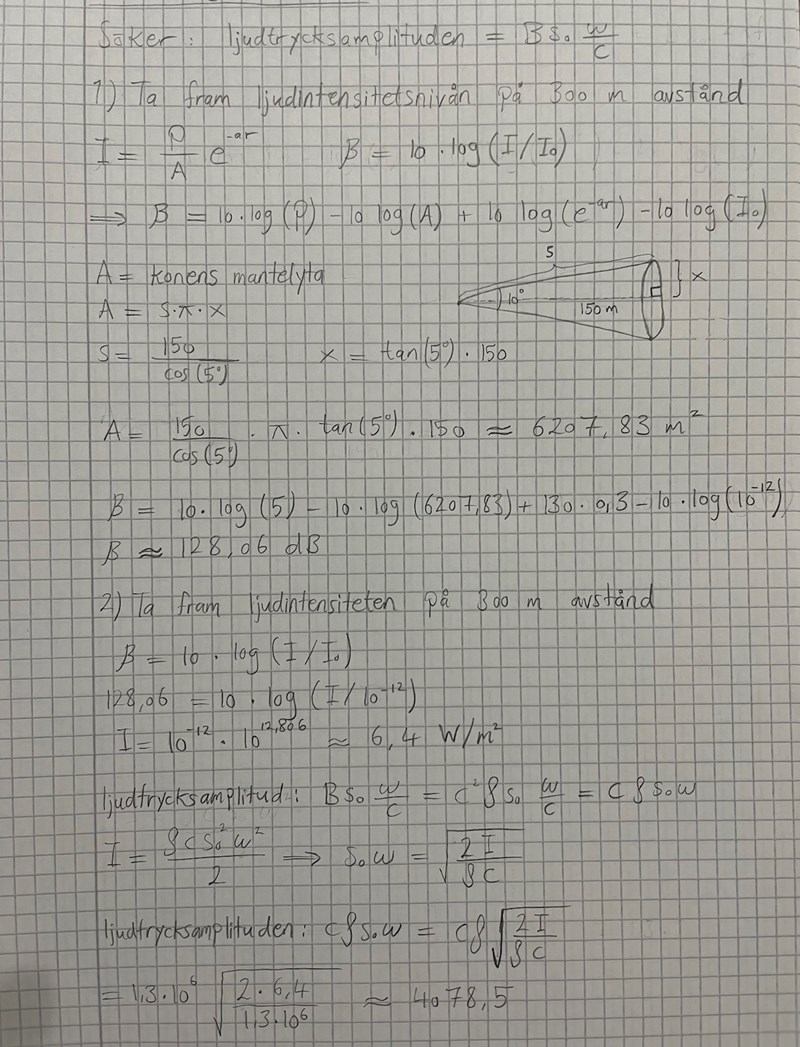 Söker: ljudtrycksamplituden = B s₀ ω/c
1) Ta fram ljudintensitetsnivån på 300 m avstånd
I = P/A e^-ar   β = 10 · log(I/I₀)
⟹ β = 10·log(P) - 10 log(A) + 10 log(e^-ar) - 10 log(I₀)
A = konens mantelyta
A = s·π·x
s
10°
150 m
x
s = 150/cos(5°)   x = tan(5°) · 150
A = 150/cos(5°) · π · tan(5°) · 150 ≈ 6207,83 m²
β = 10·log(5) - 10·log(6207,83) + 130·0,3 - 10·log(10^-12)
β ≈ 128,06 dB
2) Ta fram ljudintensiteten på 300 m avstånd
β = 10 · log(I/I₀)
128,06 = 10 · log(I/10^-12)
I = 10^-12 · 10^12,806 ≈ 6,4 W/m²
ljudtrycksamplitud: B s₀ ω/c = c²ρ s₀ ω/c = c ρ s₀ ω
I = ρ c s₀² ω²/2 ⟹ s₀ω = √(2I/ρc)
ljudtrycksamplituden: cρs₀ω = cρ√(2I/ρc)
= 1,3·10⁶ √(2·6,4/1,3·10⁶) ≈ 4078,5